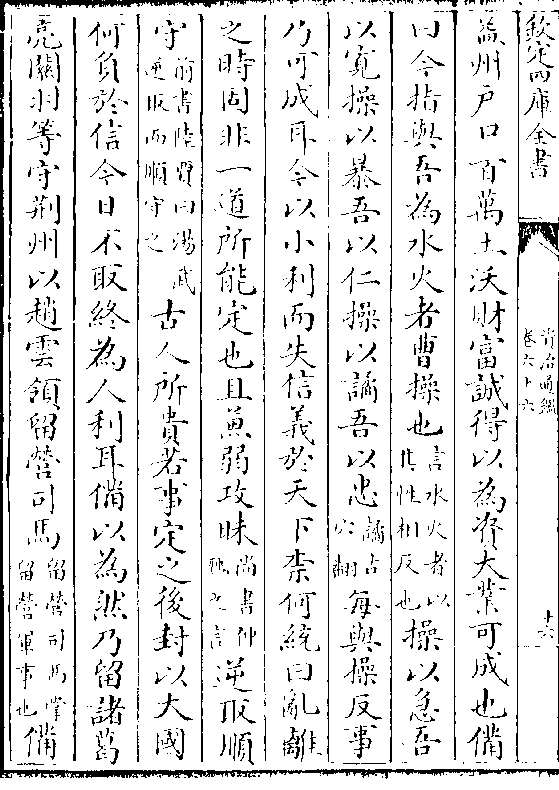 欽定四庫全書
資治通鑑
卷六十六
十六
益州戶口百萬土沃財富誠得以為資大業可成也備
曰今指與吾為水火者曹操也言水火者以其性相反也操以急吾
以寬操以暴吾以仁操以譎吾以忠譎古穴翻每與操反事
乃可成耳今以小利而失信義於天下柰何統曰亂離
之時固非一道所能定也且兼弱攻昧尚書仲虺之言逆取順
守前書陸賈曰湯武逆取而順守之古人所貴若事定之後封以大國
何負於信今日不取終為人利耳備以為然乃留諸葛
亮關羽等守荆州以趙雲領留營司馬留營司馬掌留營軍事也備